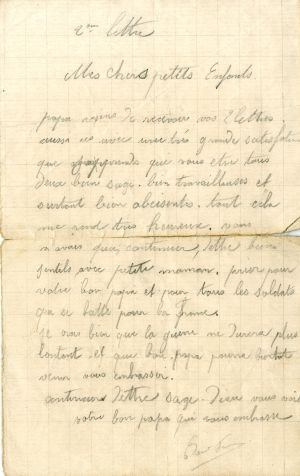 2eme lettre
Mes chers petits Enfants
papa viens de recevoir vos 2 lettres.
aussi ces avec une très grande satisfation
que j'apprends que vous etes tous
deux bien sage. bien travailleuses et
surtout bien obeisents. tout cela
me rend très heureux. vous
n'avais qua continuer, d'ettre bien
gentils avec petite maman. prier pour
votre bon papa et pour tous les soldats
qui se batte pour la France.
Je crois bien que la guerre ne durera plus
lontemt et que bon papa pourra bientot
venir vous embrasser.
continuer d'ettre sage. Dieu vous
votre bon papa qui vous embrasse